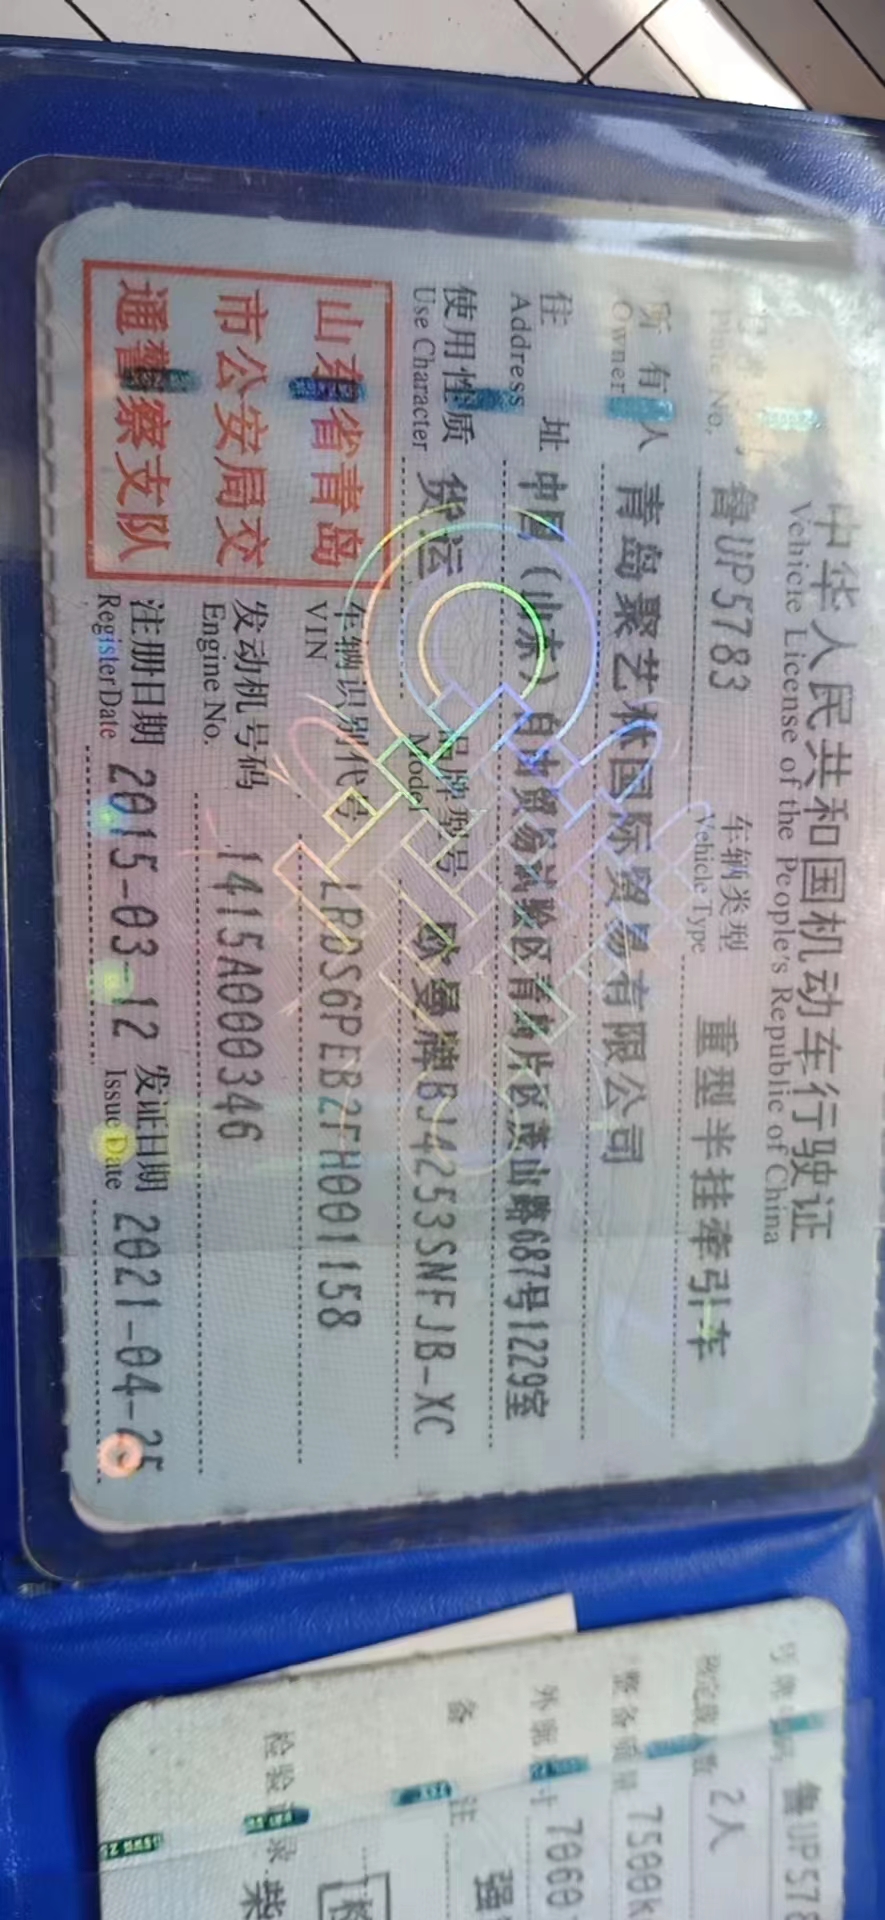 中华人民共和国机动车行驶证
Vehicle License of the People's Republic of China
Plate No. 鲁UP5783 车辆类型 重型半挂牵引车
Vehicle Type
所有人 青岛聚艺林国际贸易有限公司
Owner
住址 中国（山东）自由贸易试验区青岛片区茂山路687号1229室
Address
使用性质 货运 品牌型号 欧曼牌BJ4253SNFJB-XC
Use Character Model
山东省青岛
市公安局交
通警察支队
车辆识别代号 LRDS6PEB2FH001158
VIN
发动机号码 1415A000346
Engine No.
注册日期 2015-03-12 发证日期 2021-04-25
Register Date Issue Date
号牌号码 鲁UP578
核定载人数 2人
整备质量 7500k
外廓尺寸 7060
备注 强
检验记录